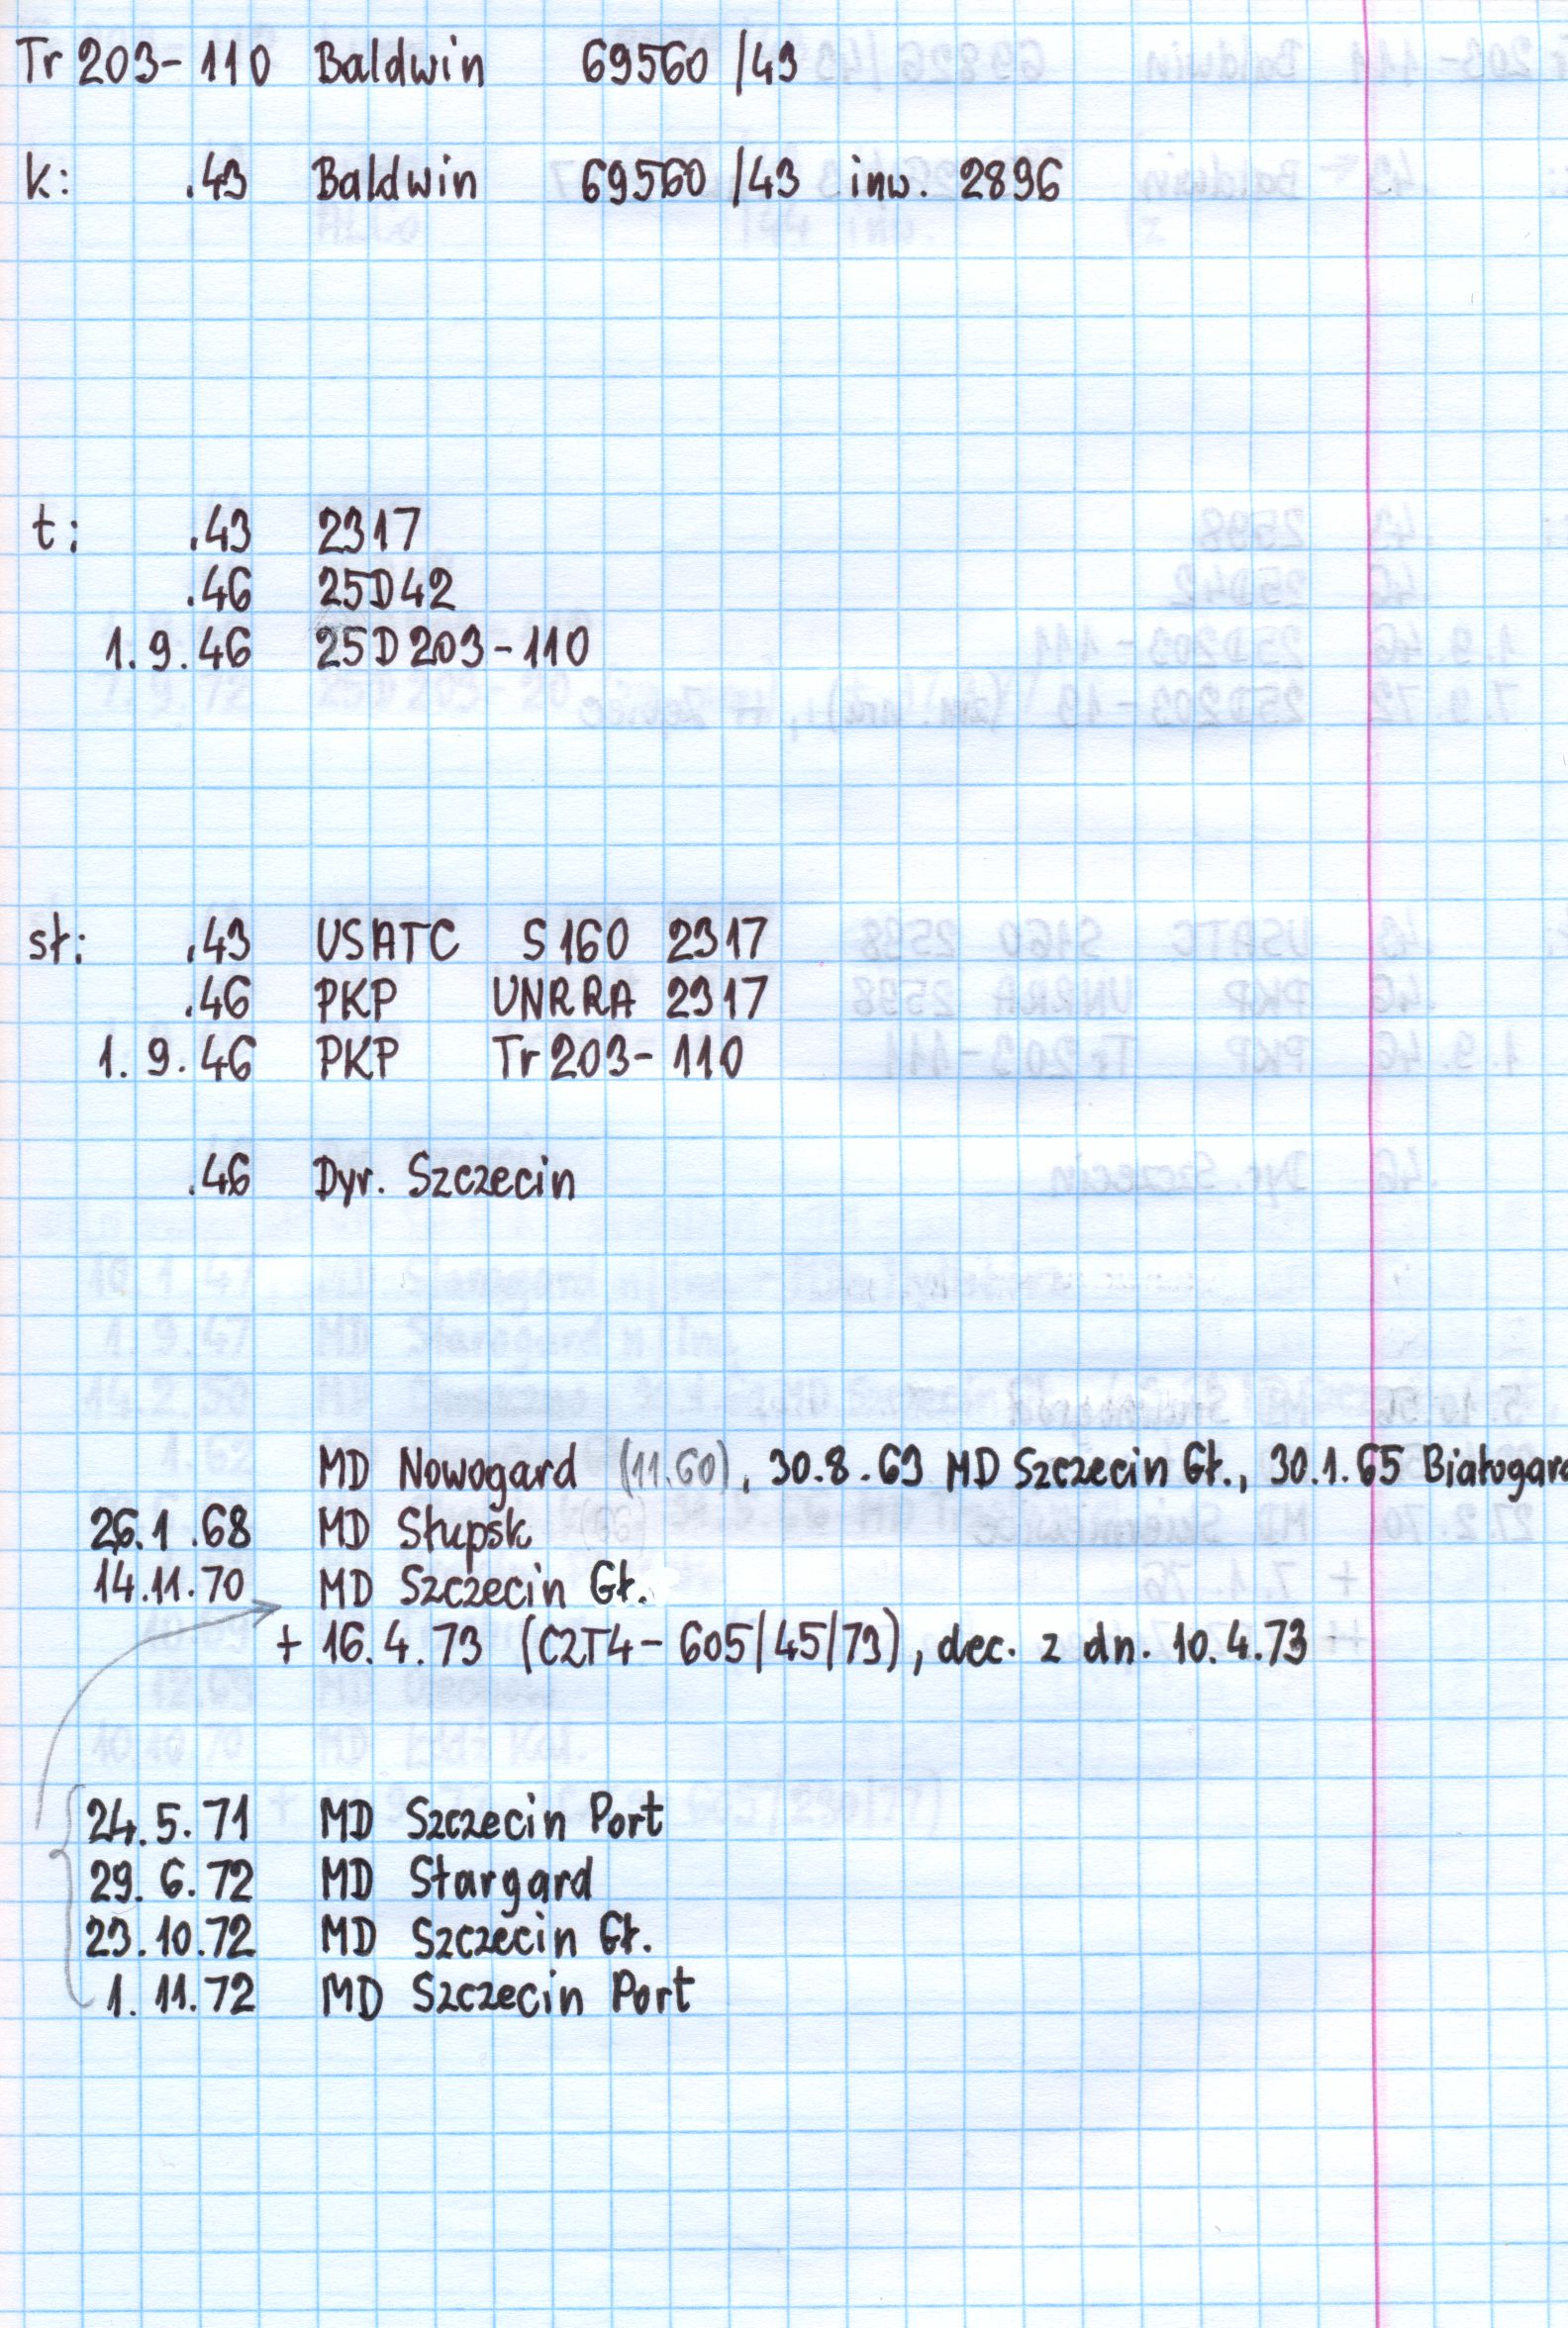 Tr 203-110 Baldwin 69560/43
k: .43 Baldwin 69560/43 inw. 2896
t: .43 2317
.46 25D42
1.9.46 25D203-110
sł: .43 USATC S160 2317
.46 PKP UNRRA 2317
1.9.46 PKP Tr203-110
.46 Dyr. Szczecin
MD Nowogard (11.60), 30.8.63 MD Szczecin Gł., 30.1.65 Białogard
26.1.68 MD Słupsk
14.11.70 MD Szczecin Gł.
+ 16.4.73 (CZT4-605/45/73), dec. z dn. 10.4.73
24.5.71 MD Szczecin Port
29.6.72 MD Stargard
23.10.72 MD Szczecin Gł.
1.11.72 MD Szczecin Port